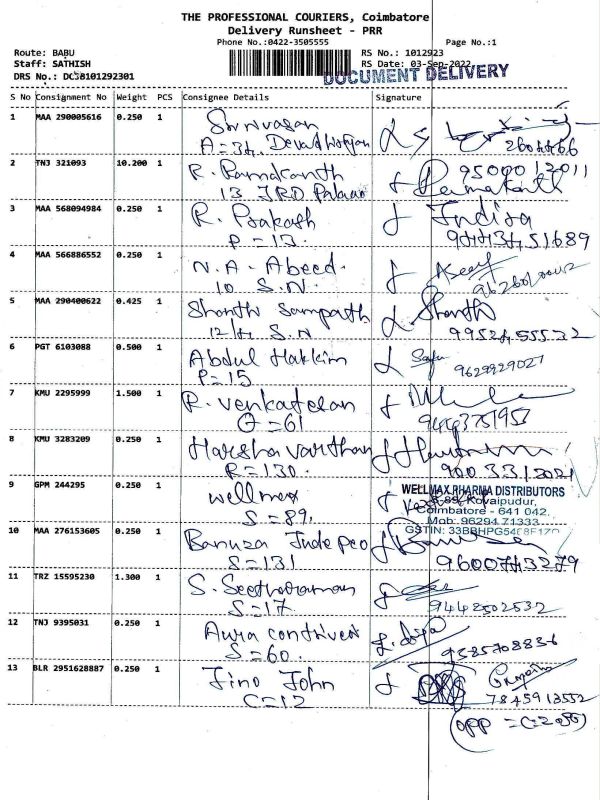 THE PROFESSIONAL COURIERS, Coimbatore
Delivery Runsheet - PRR
Phone No.:0422-3505555 Page No.:1
Route: BABU RS No.: 1012923
Staff: SATHISH RS Date: 03-Sep-2022
DRS No.: DCSB101292301 DOCUMENT DELIVERY
S No Consignment No Weight PCS Consignee Details Signature
1 MAA 290005616 0.250 1 Srinivasan
A=34,
2 TNJ 321093 10.200 1 R. Ramakanth 9500012011
13 JRD Ramakanth
3 MAA 568094984 0.250 1 R. Prakash Indira
P=13.
4 MAA 566886552 0.250 1 N.A. Abeed.
10 S.N.
5 MAA 290400622 0.425 1 Shanthi Sampath Shanthi
S.N
6 PGT 6103088 0.500 1 Abdul Hakkim 9629929027
P=15
7 KMU 2295999 1.500 1 R. Venkatesan
O=61
8 KMU 3283209 0.250 1 Harsha Varthan
R=130.
9 GPM 244295 0.250 1 Wellmax WELLMAX PHARMA DISTRIBUTORS
S=89. Kovaipudur,
Coimbatore - 641 042.
Mob: 96294 71333
10 MAA 276153605 0.250 1 GSTIN:
S=131 9600743279
11 TRZ 15595230 1.300 1 S. Seetharaman
S=17 9442502532
12 TNJ 9395031 0.250 1 Aura
S=60. 9585708836
13 BLR 2951628887 0.250 1 Jino John
C=12 7845913552